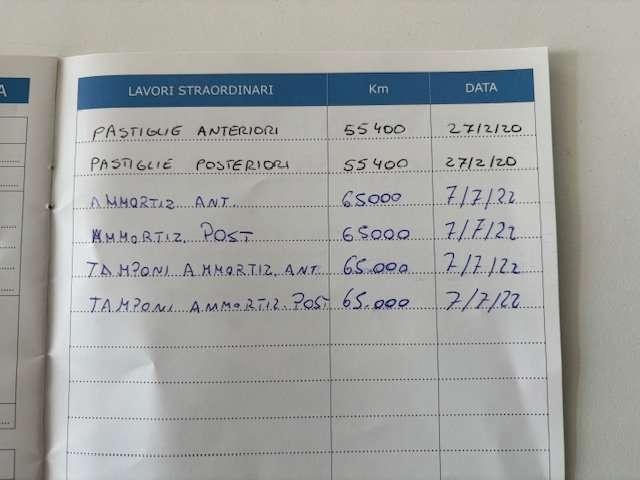 A
LAVORI STRAORDINARI Km DATA
PASTIGLIE ANTERIORI 55400 27/2/20
PASTIGLIE POSTERIORI 55400 27/2/20
AMMORTIZ ANT. 65000 7/7/22
AMMORTIZ. POST 65000 7/7/22
TAMPONI AMMORTIZ. ANT. 65.000 7/7/22
TAMPONI AMMORTIZ. POST 65.000 7/7/22